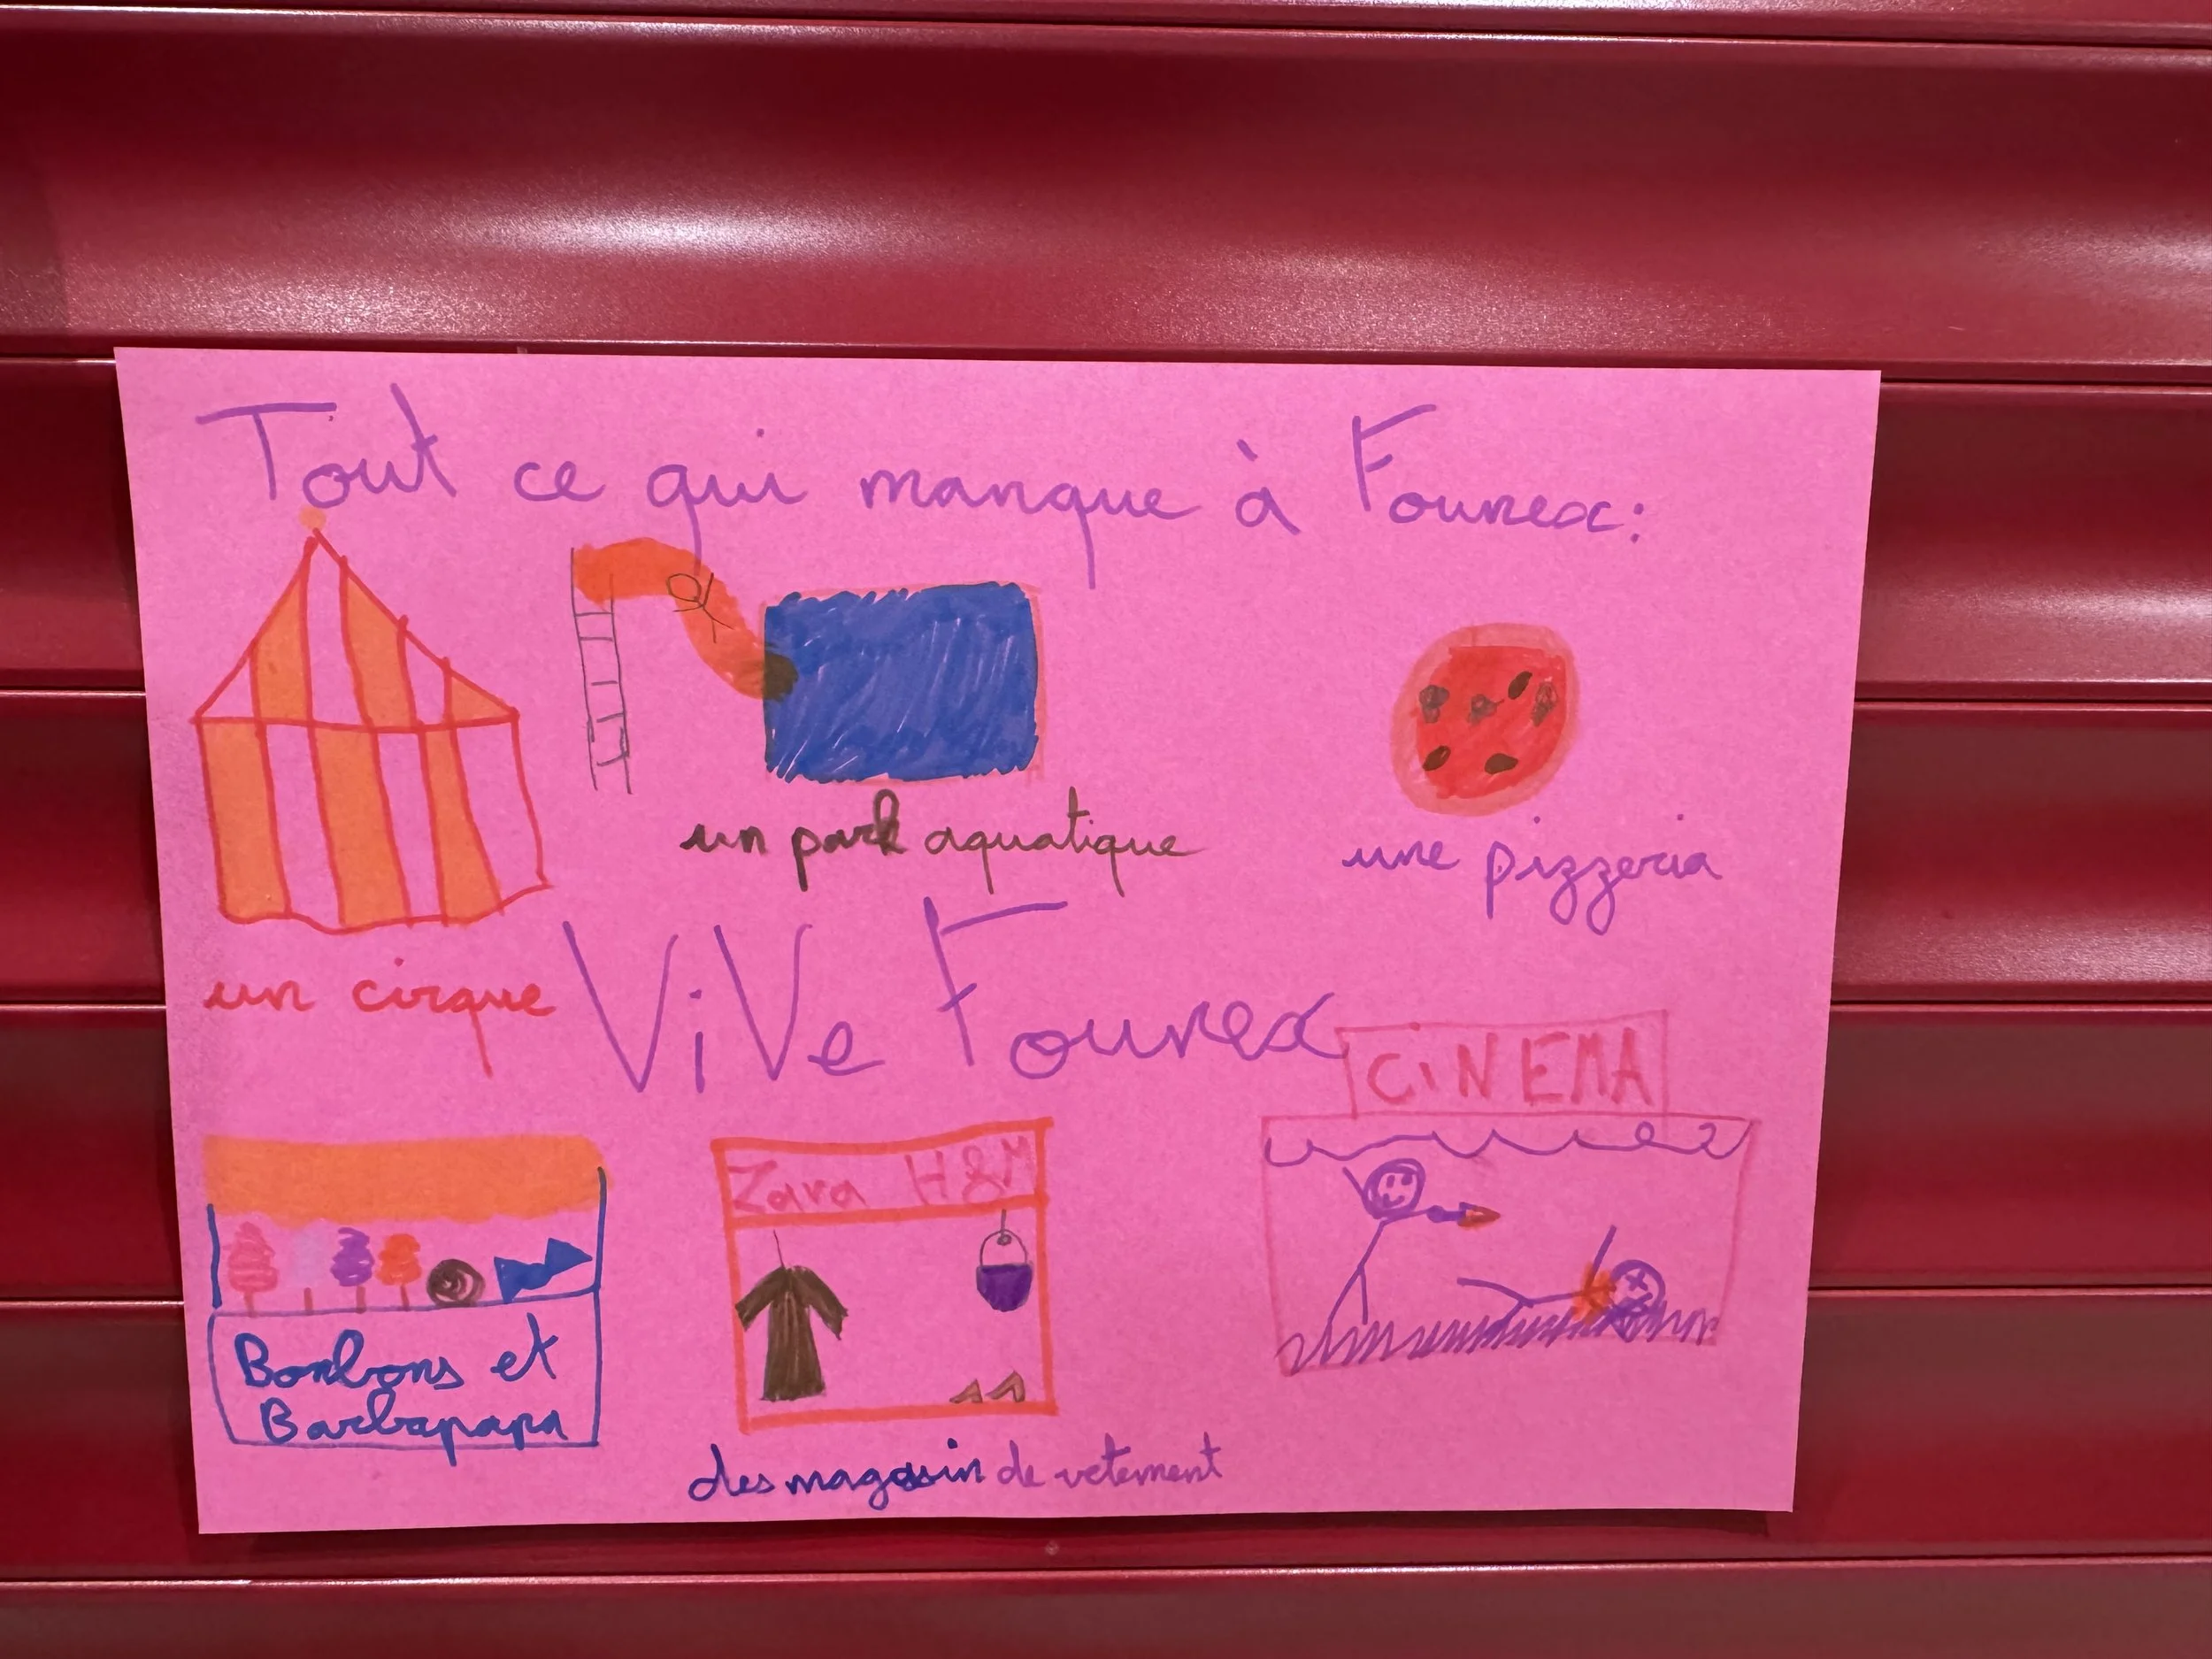 Tout ce qui manque à Founex:
un park aquatique
une pizzeria
un cirque
ViVe Founex
CiNEMA
Zara H&M
Bonbons et
Barbapapa
des magasin de vetement